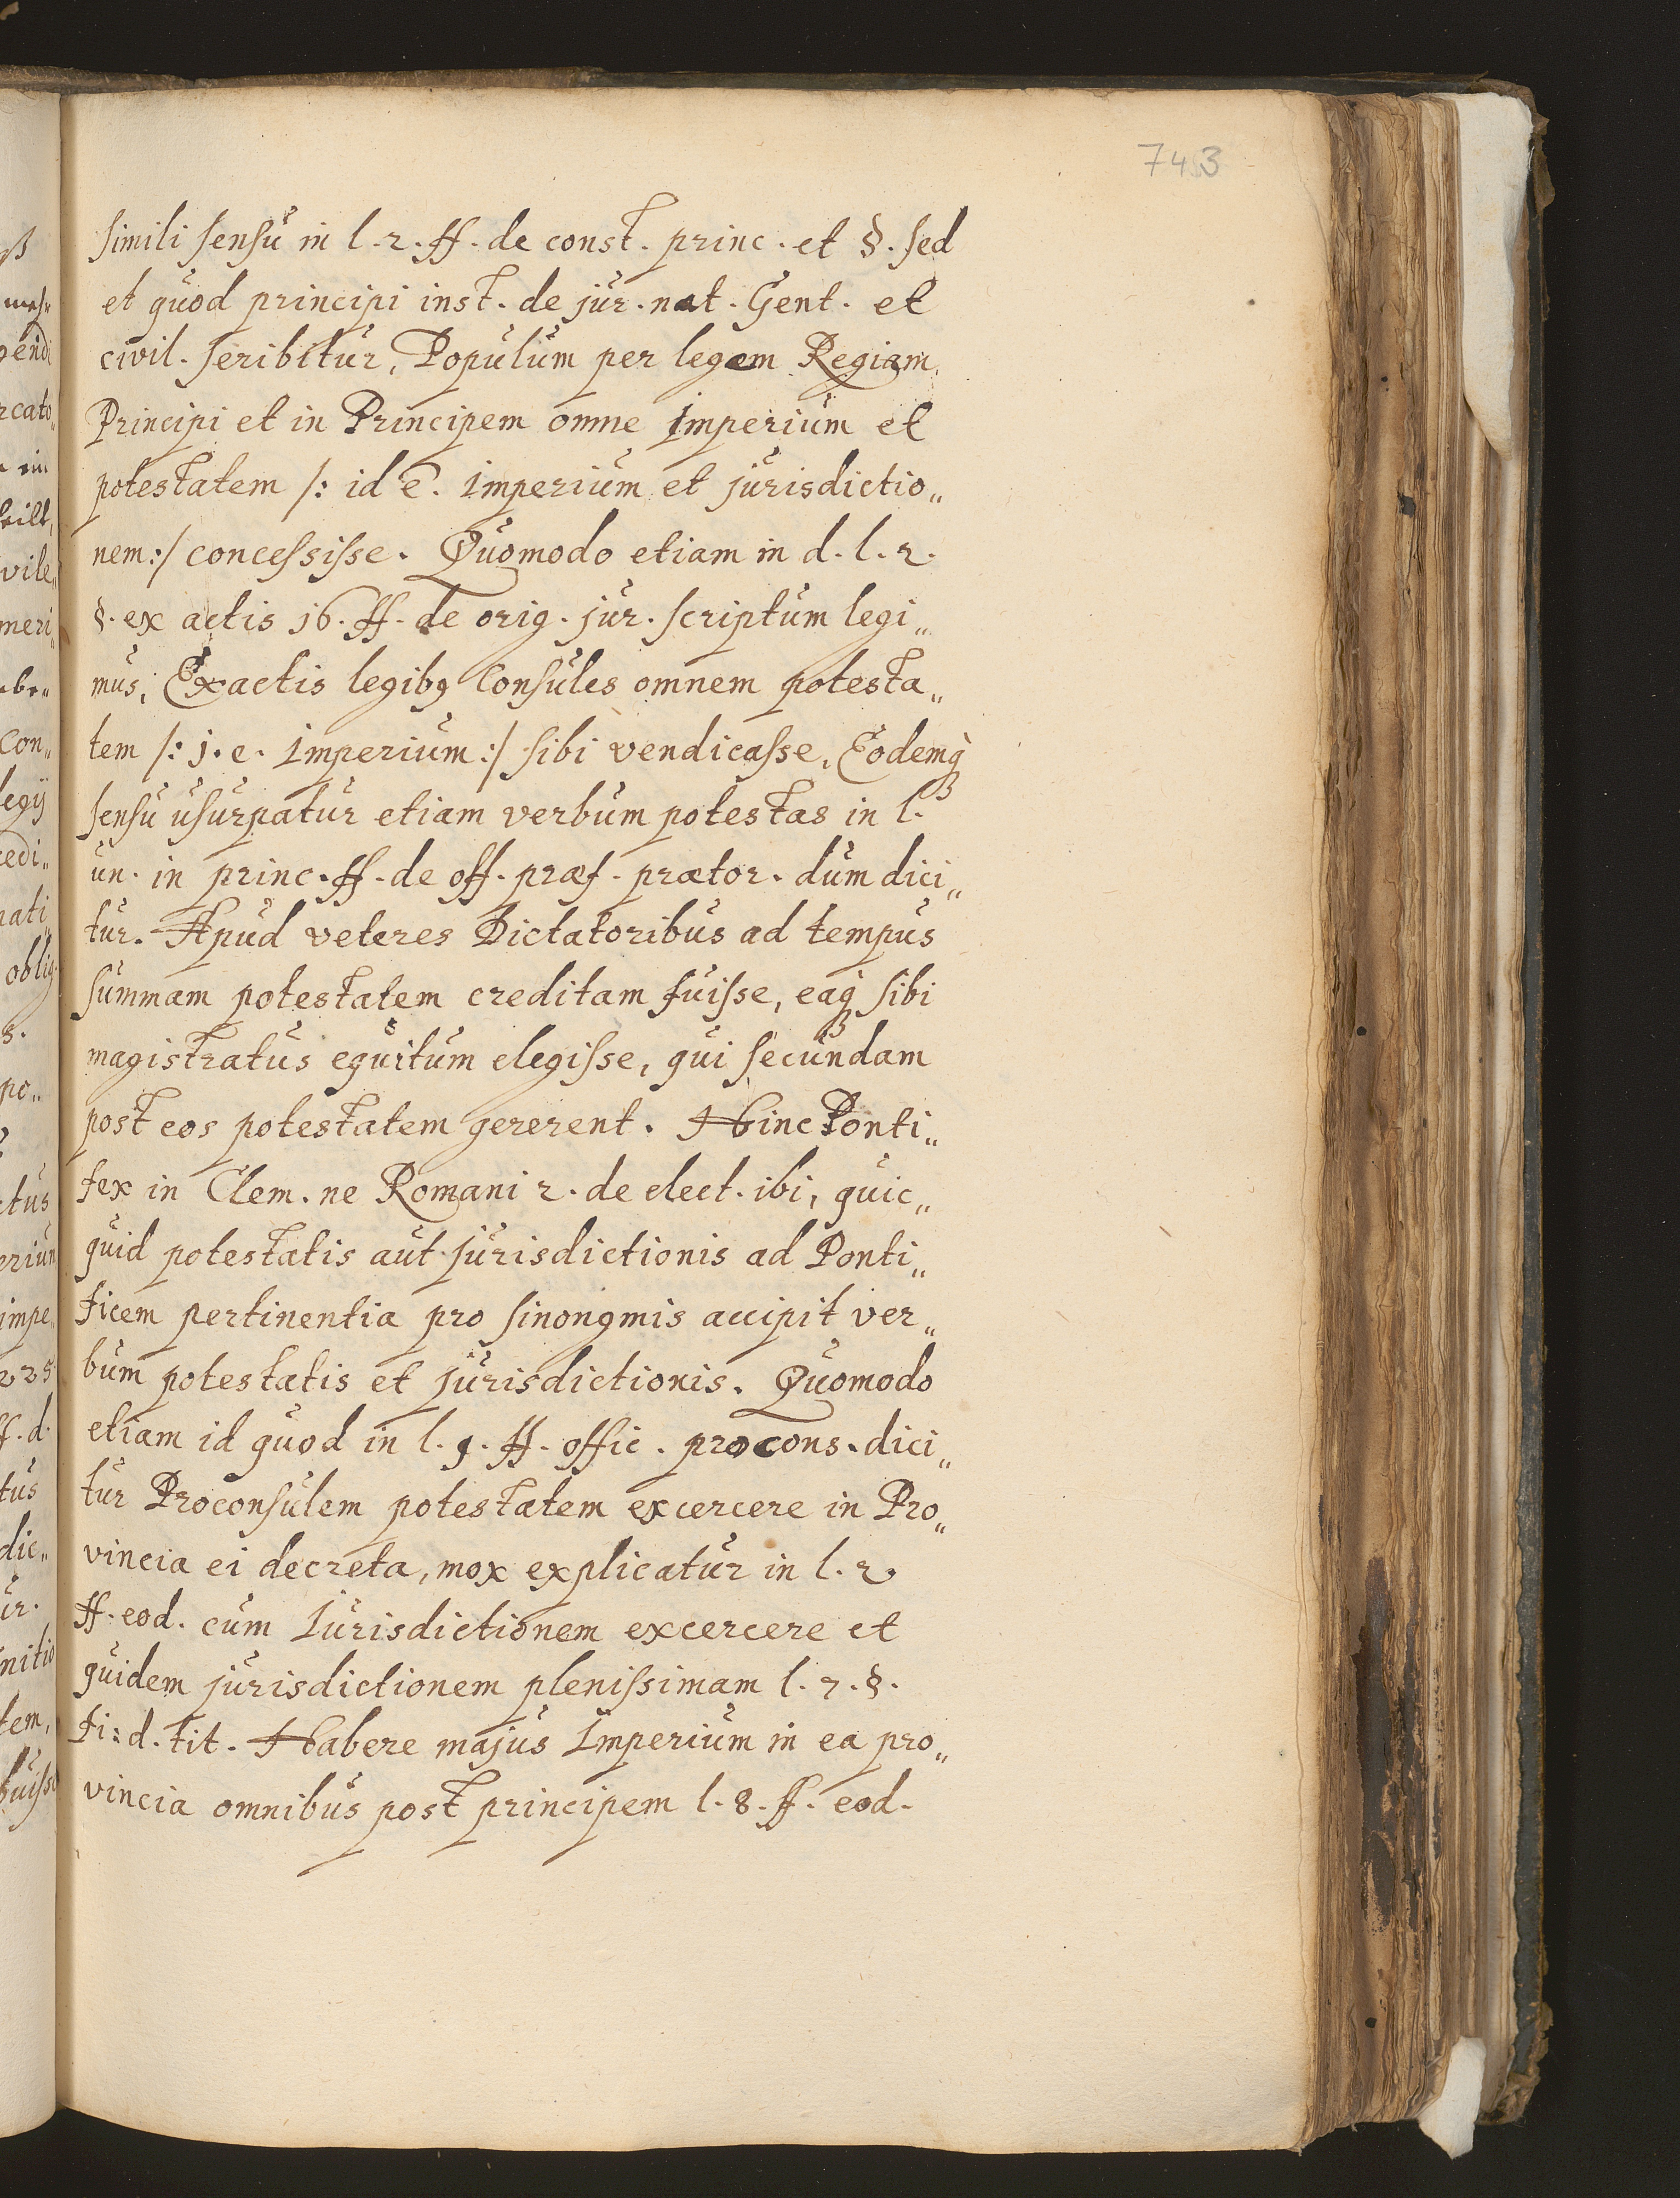 743
simili sensu in l. 2. ff. de const. princ. et §. sed
et quod principi inst. de jur. nat. Gent. et
civil. seribitur, Populum per legem Regiam
Principi et in Principem omne imperium et
potestatem /: id ē. imperium et jurisdictio„
nem :/ concessisse. Quomodo etiam in d. l. 2.
§. ex actis 16. ff. de orig. jur. scriptum legi„
mus, Exactis legibꝰ Consules omnem potesta„
tem /: j. e. Imperium :/ sibi vendicasse, Eodemq̀ꝫ
sensu usurpatur etiam verbum potestas in l.
un. in princ. ff. de off. præf. prætor. dum dici„
tur. Apud veteres Dictatoribus ad tempus
summam potestatem creditam fuisse, eaq̀ꝫ sibi
magistratus equitum elegisse, qui secundam
post eos potestatem gererent. Hinc Ponti„
fex in Clem. ne Romani 2. de elect. ibi, quic„
quid potestatis aut jurisdictionis ad Ponti„
ficem pertinentia pro sinonymis accipit ver„
bum potestatis et jurisdictionis. Quomodo
etiam id quod in l. 9. ff. offic. procons. dici„
tur Proconsulem potestatem excercere in Pro„
vincia ei decreta, mox explicatur in l. 2.
ff. eod. cum Iurisdictionem excercere et
quidem jurisdictionem plenissimam l. 7. §.
fi: d. tit. Habere majus Imperium in ea pro„
vincia omnibus post principem l. 8. ff. eod.